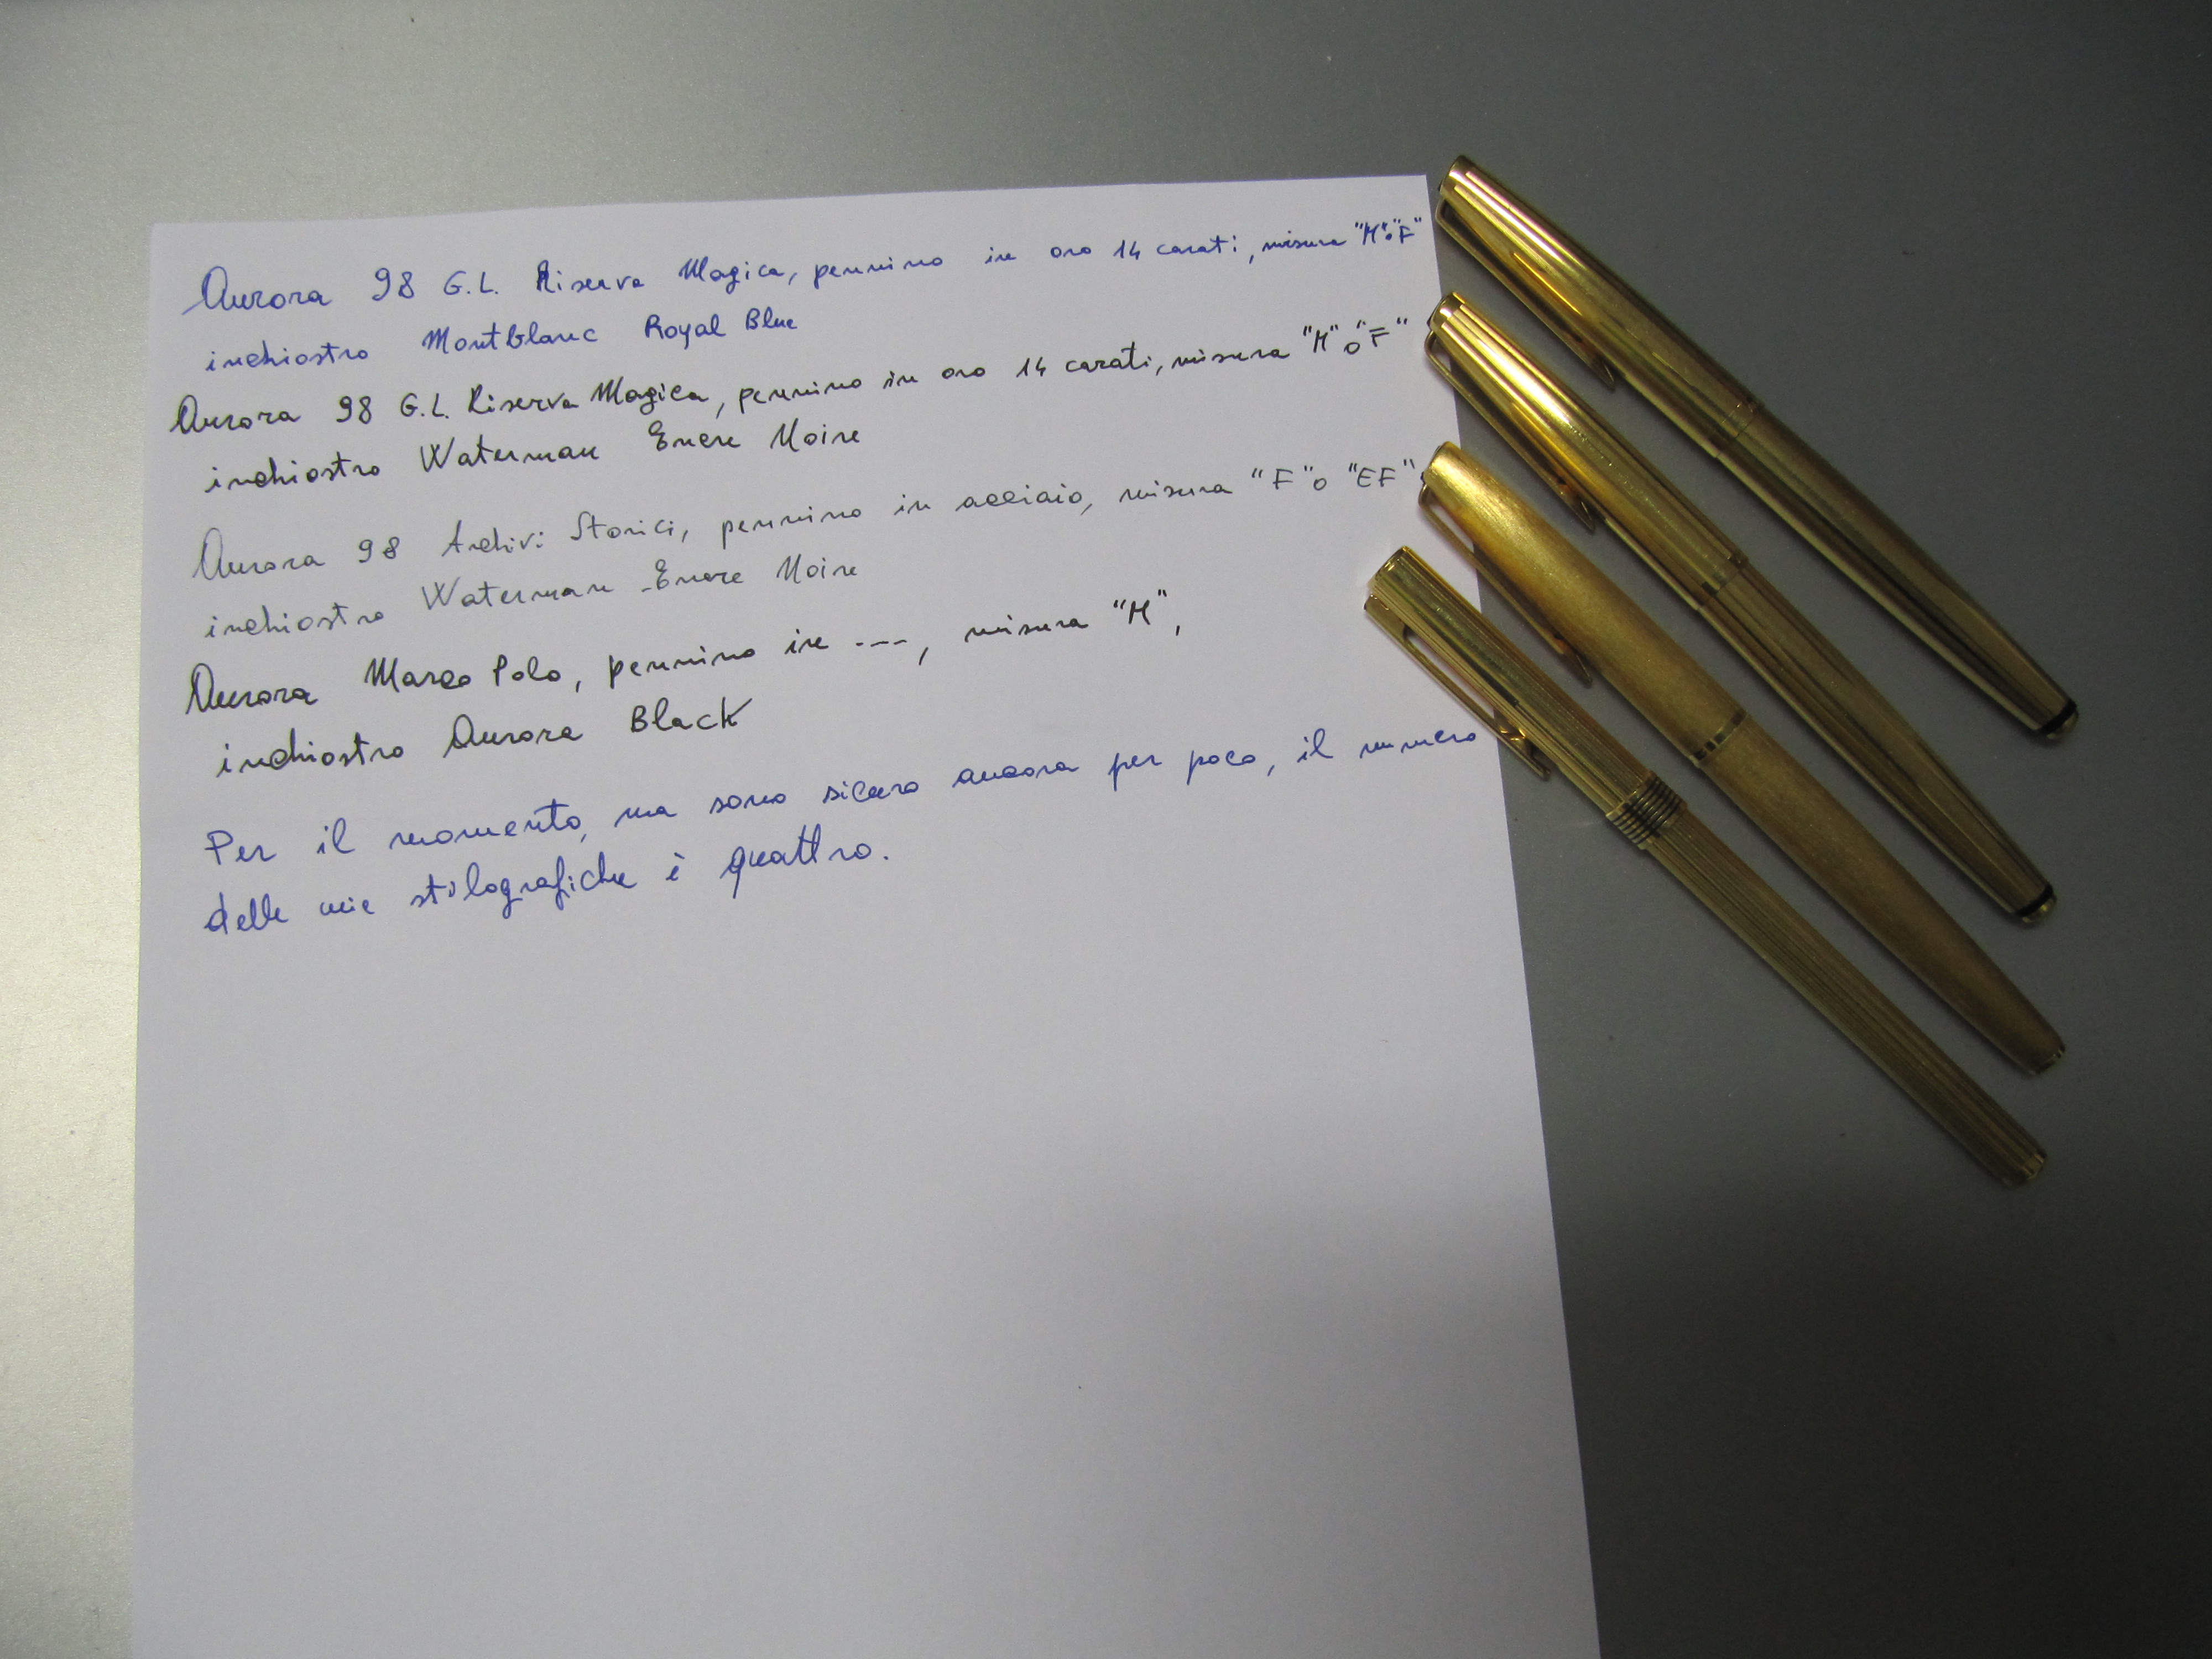 Aurora 98 G.L. Riserva Magica, pennino in oro 14 carati, misura "M" o "F"
inchiostro Montblanc Royal Blue
Aurora 98 G.L. Riserva Magica, pennino in oro 14 carati, misura "M" o "F"
inchiostro Waterman Encre Noire
Aurora 98 Archivi Storici, pennino in acciaio, misura "F" o "EF"
inchiostro Waterman Encre Noire
Aurora Marco Polo, pennino in ---, misura "M",
inchiostro Aurora Black
Per il momento, ma sono sicuro ancora per poco, il numero
delle mie stilografiche è quattro.